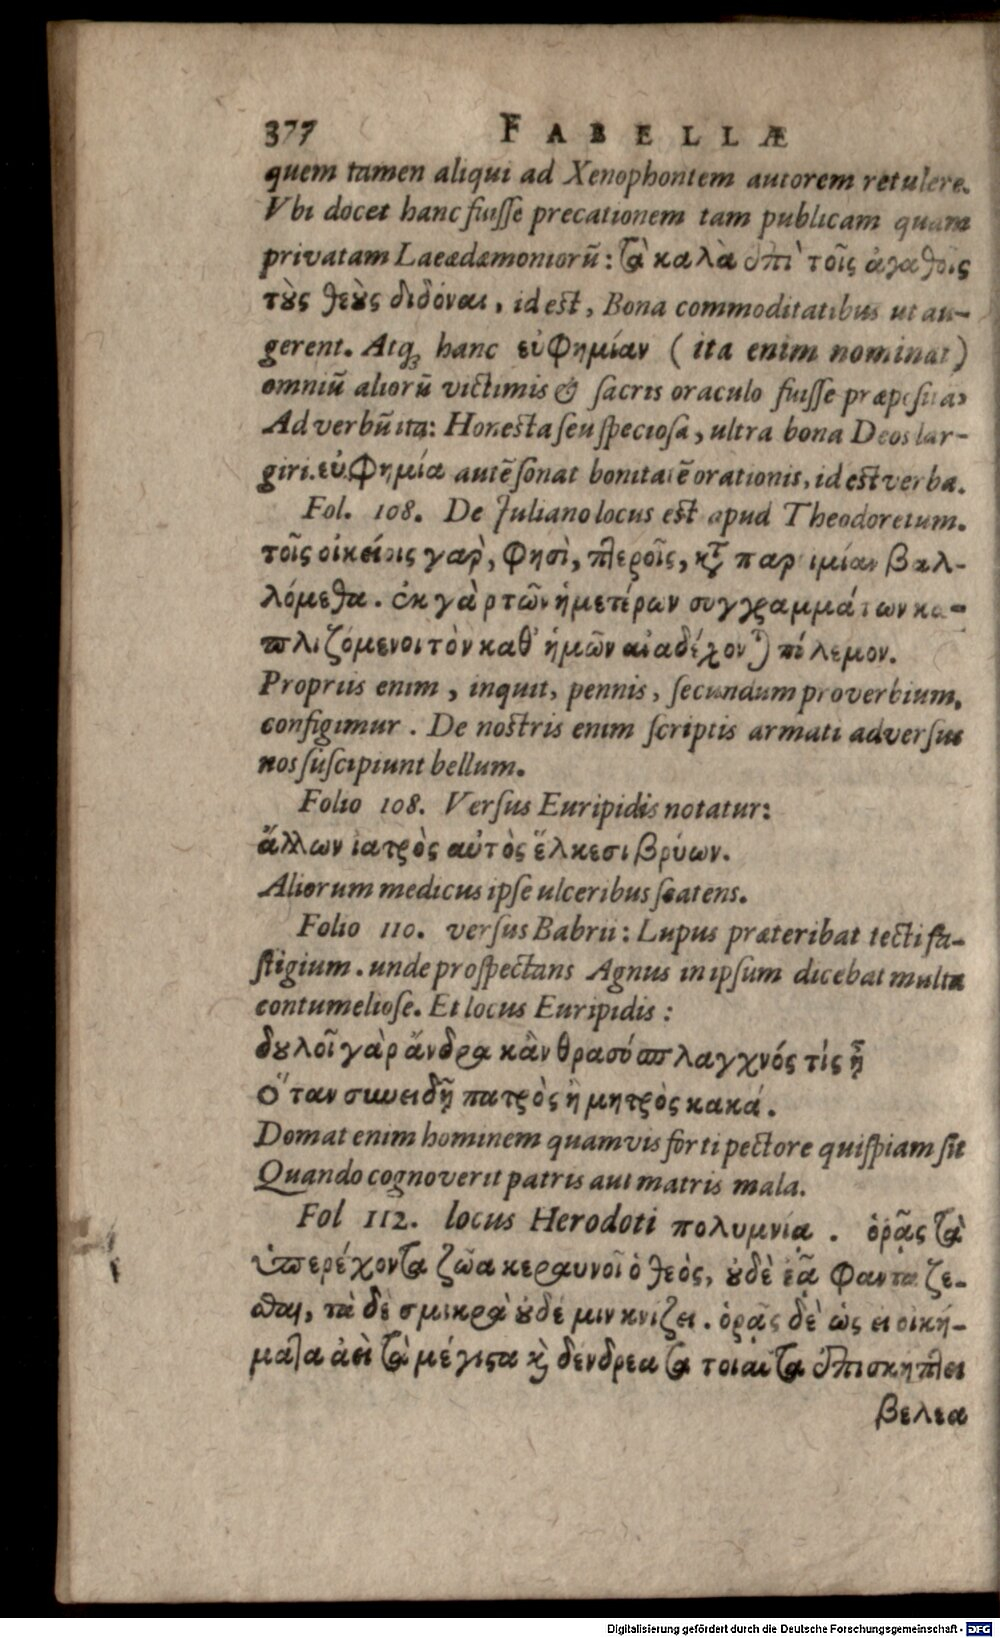 377 FABELLÆ
quem tamen aliqui ad Xenophontem autorem retulere.
Vbi docet hanc fuisse precationem tam publicam quam
privatam Laeædæmoniorũ: τὰ καλὰ ἐπὶ τοῖς ἀγαθοῖς
τοὺς θεοὺς διδόναι, id est, Bona commoditatibus ut au-
gerent. Atq; hanc εὐφημίαν (ita enim nominat)
omniũ aliorũ victimis & sacris oraculo fuisse præposita
Ad verbũ ita: Honesta seu speciosa, ultra bona Deos lar-
giri. εὐφημία autẽ sonat bonitatẽ orationis, id est verba.
Fol. 108. De Juliano locus est apud Theodoretum.
τοῖς οἰκείοις γαρ, φησὶ, πτεροῖς, κτ παροιμίαν βαλ-
λόμεθα. ἐκ γὰρ τῶν ἡμετέρων συγγραμμάτων κα-
πλιζόμενοι τὸν καθ' ἡμῶν πόλεμον.
Propriis enim, inquit, pennis, secundum proverbium,
configimur. De nostris enim scriptis armati adversus
nos suscipiunt bellum.
Folio 108. Versus Euripidis notatur:
ἄλλων ἰατρὸς αὐτὸς ἕλκεσι βρύων.
Aliorum medicus ipse ulceribus scatens.
Folio 110. versus Babrii: Lupus præteribat tecti fa-
stigium. unde prospectans Agnus in ipsum dicebat multa
contumeliose. Et locus Euripidis:
δουλοῖ γὰρ ἄνδρα κἂν θρασύσπλαγχνός τίς ᾖ
Ὅταν συνειδῇ πατρὸς ἢ μητρὸς κακά.
Domat enim hominem quamvis forti pectore quispiam sit
Quando cognoverit patris aut matris mala.
Fol 112. locus Herodoti πολυμνία. ὁρᾷς τὰ
ὑπερέχοντα ζῶα κεραυνοῖ ὁ θεὸς, οὐδὲ ἐᾷ φαντάζε-
σθαι, τὰ δὲ σμικρὰ οὐδέ μιν κνίζει. ὁρᾷς δὲ ὡς εἰ οἰκή-
ματα ἀεὶ τὰ μέγιστα καὶ δένδρεα τὰ τοιαῦτα ἐπισκήπτει
βελεα
Digitalisierung gefördert durch die Deutsche Forschungsgemeinschaft - DFG